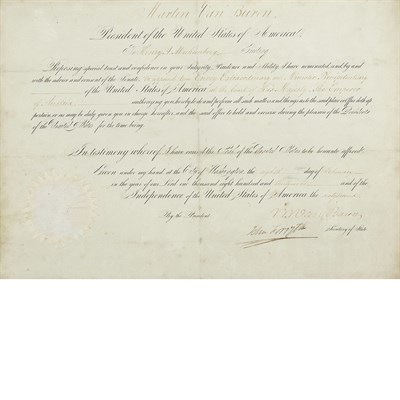 Martin Van Buren
President of the United States of America,
To Henry A. Muhlenberg Greeting
Reposing special trust and confidence in your Integrity, Prudence and Ability, I have nominated, and by and
with the advice and consent of the Senate, appoint you Envoy Extraordinary and Minister Plenipotentiary
of the United States of America at the Court of His Majesty the Emperor
of Austria authorizing you hereby to do and perform all such matters and things as to the said place or office doth ap
pertain or as may be duly given you in charge hereafter, and the said office to hold and exercise during the pleasure of the President
of the United States for the time being.
In testimony whereof, I have caused the Seal of the United States to be hereunto affixed.
Given under my hand at the City of Washington the day of February
in the year of our Lord one thousand eight hundred and and of the
Independence of the United States of America, the
By the President M Van Buren
John Forsyth Secretary of State